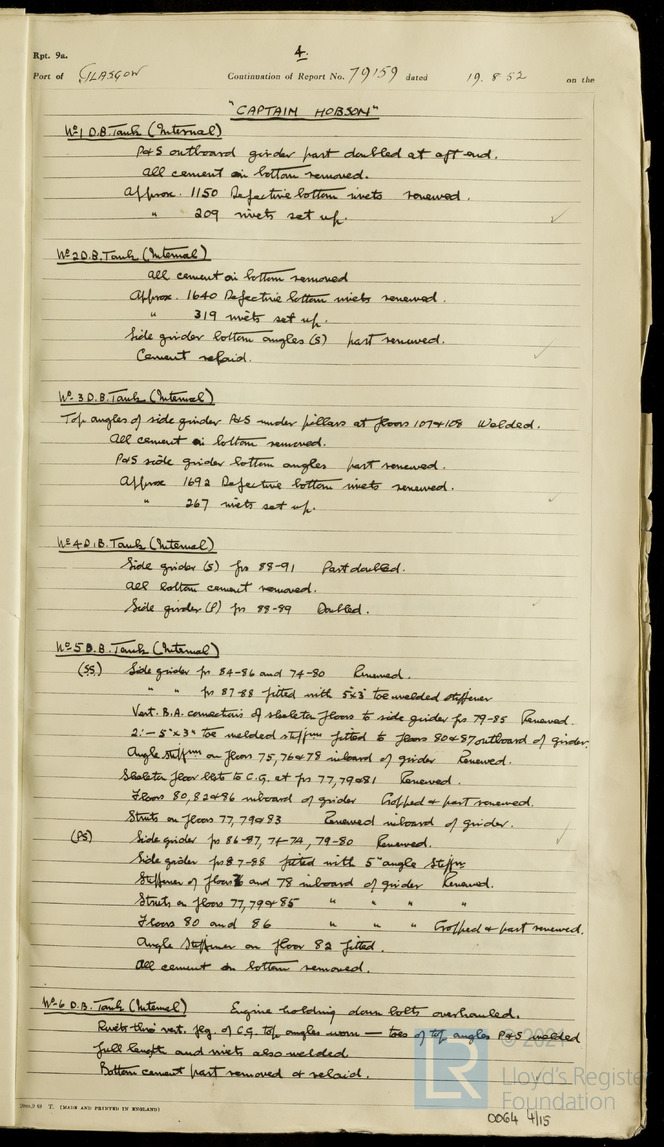 Rpt. 9a.
4.
Port of GLASGOW Continuation of Report No. 79159 dated 19.8.52 on the
"CAPTAIN HOBSON"
No 1 D.B. Tank (Internal)
P&S outboard girder part doubled at aft end.
All cement on bottom removed.
Approx. 1150 Defective bottom rivets renewed.
" 209 rivets set up.
No 2 D.B. Tank (Internal)
All cement on bottom removed
Approx. 1640 Defective bottom rivets renewed.
" 319 rivets set up.
Side girder bottom angles (S) part renewed.
Cement relaid.
No 3 D.B. Tank (Internal)
Top angles of side girder P&S under pillars at floors 107&108 Welded.
All cement on bottom removed.
P&S side girder bottom angles part renewed.
Approx 1692 Defective bottom rivets renewed.
" 267 rivets set up.
No 4 D.B. Tank (Internal)
Side girder (S) frs 88-91 Part doubled.
All bottom cement removed.
Side girder (P) frs 88-89 Doubled.
No 5 D.B. Tank (Internal)
(SS) Side girder frs 84-86 and 74-80 Renewed.
" " frs 87-88 fitted with 5"x3" toe welded stiffener
Vert. B.A. connections of skeleton floors to side girder frs 79-85 Renewed.
2:- 5"x3" toe welded stiffnrs fitted to floors 80&87 outboard of girder.
Angle stiffnrs on floors 75,76&78 inboard of girder Renewed.
Skeleton floor bkts to C.G. at frs 77,79&81 Renewed.
Floors 80,82&86 inboard of girder Cropped & part renewed.
Struts on floors 77,79&83 Renewed inboard of girder.
(PS) Side girder frs 86-87, 74-74, 79-80 Renewed.
Side girder frs 87-88 fitted with 5" angle Stiffnr
Stiffener of floors and 78 inboard of girder Renewed.
Struts on floors 77,79&85 " " " "
Floors 80 and 86 " " " Cropped & part renewed.
Angle Stiffener on floor 82 fitted.
All cement on bottom removed.
No 6 D.B. Tank (Internal) Engine holding down bolts overhauled.
Rivets thro' vert. flg. of C.G. top angles worn — toes of top angles P&S welded
full length and rivets also welded.
Bottom cement part removed & relaid.
T. (MADE AND PRINTED IN ENGLAND)
© 2021
LR
Lloyd's Register
Foundation
0064 4/15